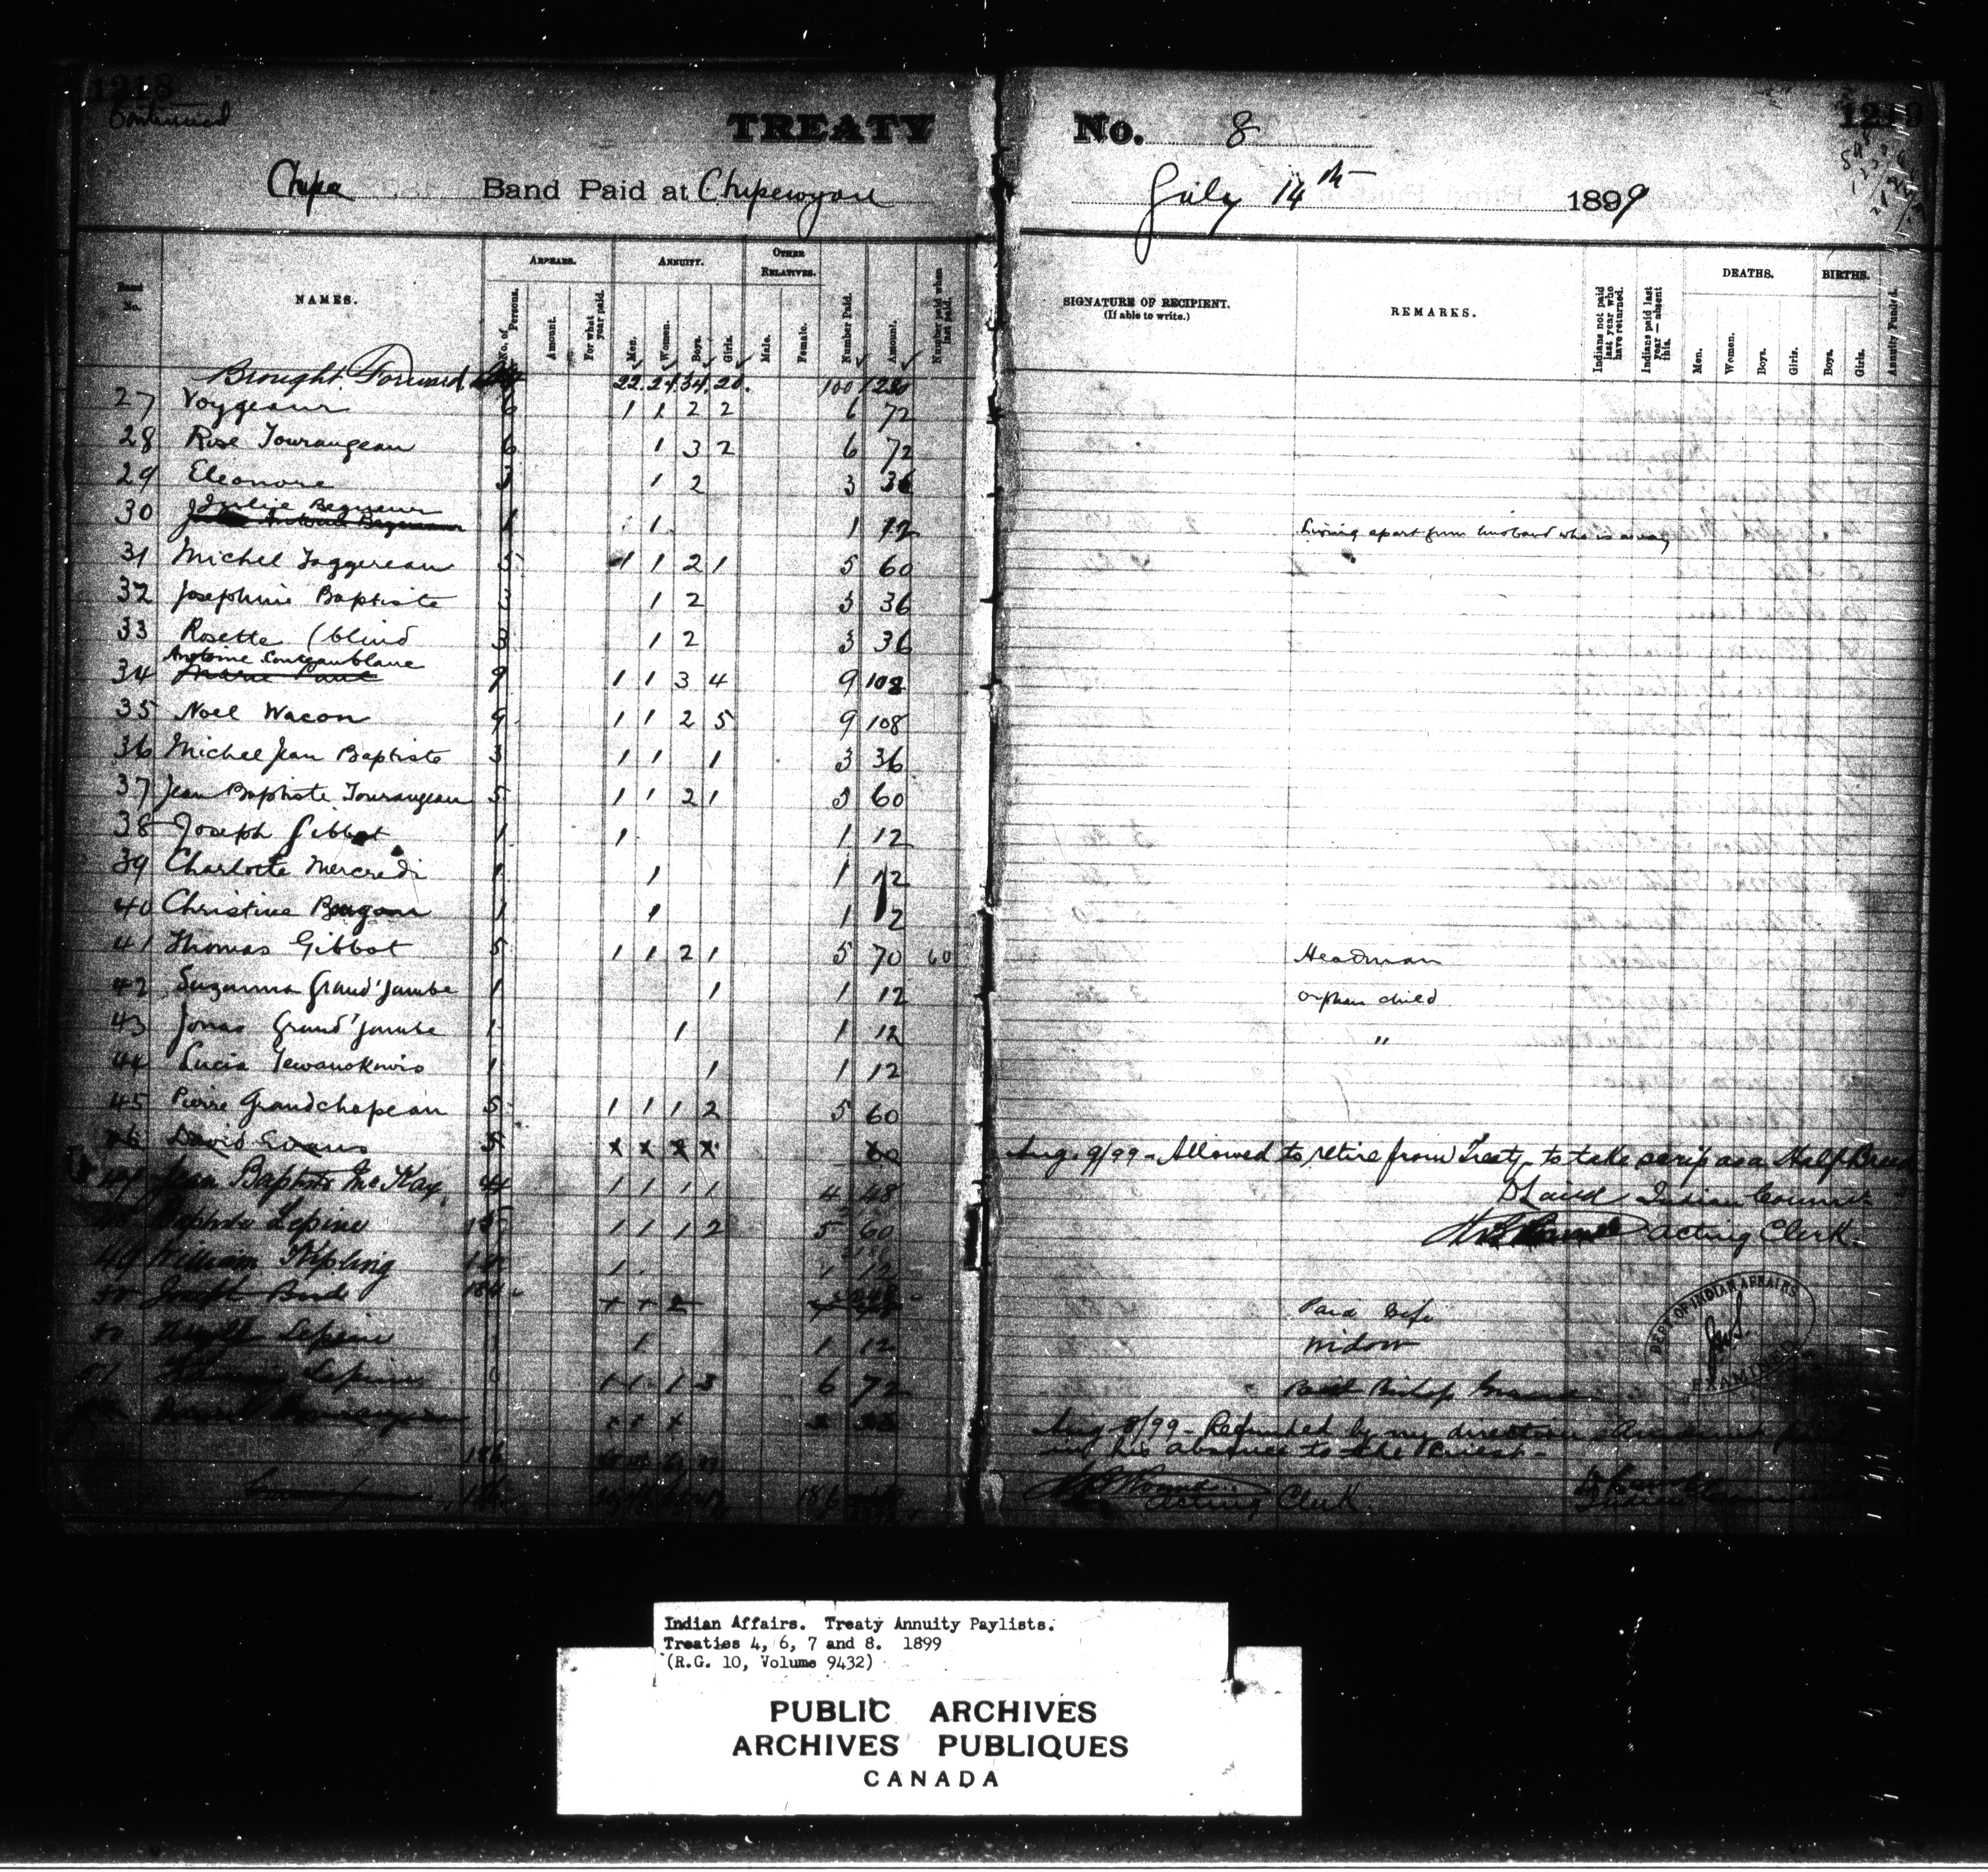 1218
1219
Continued
TREATY No. 8
Chipa Band Paid at Chipewyan July 14th 1899
Band No.
NAMES.
ARREARS.
No. of Persons.
Amount.
For what year paid.
ANNUITY.
Men.
Women.
Boys.
Girls.
OTHER RELATIVES.
Male.
Female.
Number Paid.
Amount.
Number paid when last paid.
SIGNATURE OF RECIPIENT.
(If able to write.)
REMARKS.
Indians not paid last year who have returned.
Indians paid last year — absent this.
DEATHS.
Men.
Women.
Boys.
Girls.
BIRTHS.
Boys.
Girls.
Annuity Funded.
Brought Forward 22 24 34 20 100
27 Voygeaur 6 1 1 2 2 6 72
28 Rose Tourangeau 6 1 3 2 6 72
29 Eleonore 3 1 2 3 36
30 Julie 1 1 1 12 Living apart from husband who is away
31 Michel Taggereau 5 1 1 2 1 5 60
32 Josephine Baptiste 3 1 2 3 36
33 Rosette (blind 3 1 2 3 36
Antoine
34 9 1 1 3 4 9 108
35 Noel Wacon 9 1 1 2 5 9 108
36 Michel Jean Baptiste 3 1 1 1 3 36
37 Jean Baptiste Tourangeau 5 1 1 2 1 5 60
38 Joseph Gibbot 1 1 1 12
39 Charlotte Mercredi 1 1 1 12
40 Christine 1 1 1 12
41 Thomas Gibbot 5 1 1 2 1 5 70 60 Headman
42 Suzanna Grand'Jambe 1 1 1 12 orphan child
43 Jonas Grand'Jambe 1 1 1 12 "
44 Lucia 1 1 1 12
45 Pierre Grandchapeau 5 1 1 1 2 5 60
46 David Evans 5 x x x x 60 Aug. 9/99 - Allowed to retire from Treaty to take scrip as a Half Breed
47 Jean Baptiste McKay 4 1 1 1 1 4 48 D Laird Indian Commr.
48 Baptiste Lepine 1 1 1 2 5 60 Acting Clerk
49 William Kipling 1 1 12
50 Joseph Bird Paid Wife
50 Lepine 1 1 1 12 Widow
51 Lepine 6 1 1 1 3 6 72 Paid Bishop
Aug 8/99 - Refunded by my direction
in his absence to the Priest -
186
186
Acting Clerk
Indian
DEPT. OF INDIAN AFFAIRS
EXAMINED
Indian Affairs. Treaty Annuity Paylists.
Treaties 4, 6, 7 and 8. 1899
(R.G. 10, Volume 9432)
PUBLIC ARCHIVES
ARCHIVES PUBLIQUES
CANADA